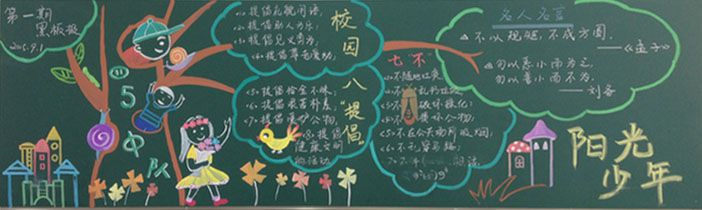 第一期
黑板报
2015.9.1
四
5
中
队
校园
八"提倡"
1、提倡礼貌用语,
2、提倡助人为乐,
3、提倡见义勇为,
4、提倡尊老爱幼,
5、提倡拾金不昧,
6、提倡艰苦朴素,
7、提倡爱护公物,
8、提倡
健康文明
的活动
七不
1、不随地吐痰
不乱扔垃圾
不破坏绿化
不损坏公物
5、不在公共场所吸烟,
6、不
名人名言
不以规矩,不成方圆。
——《孟子》
勿以恶小而为之,
勿以善小而不为。
——刘备
阳光
少年